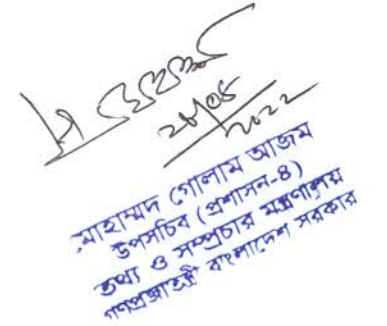 ২৮/০৪
২০২২
মোহাম্মদ গোলাম আজম
উপসচিব (প্রশাসন-৪)
তথ্য ও সম্প্রচার মন্ত্রণালয়
গণপ্রজাতন্ত্রী বাংলাদেশ সরকার